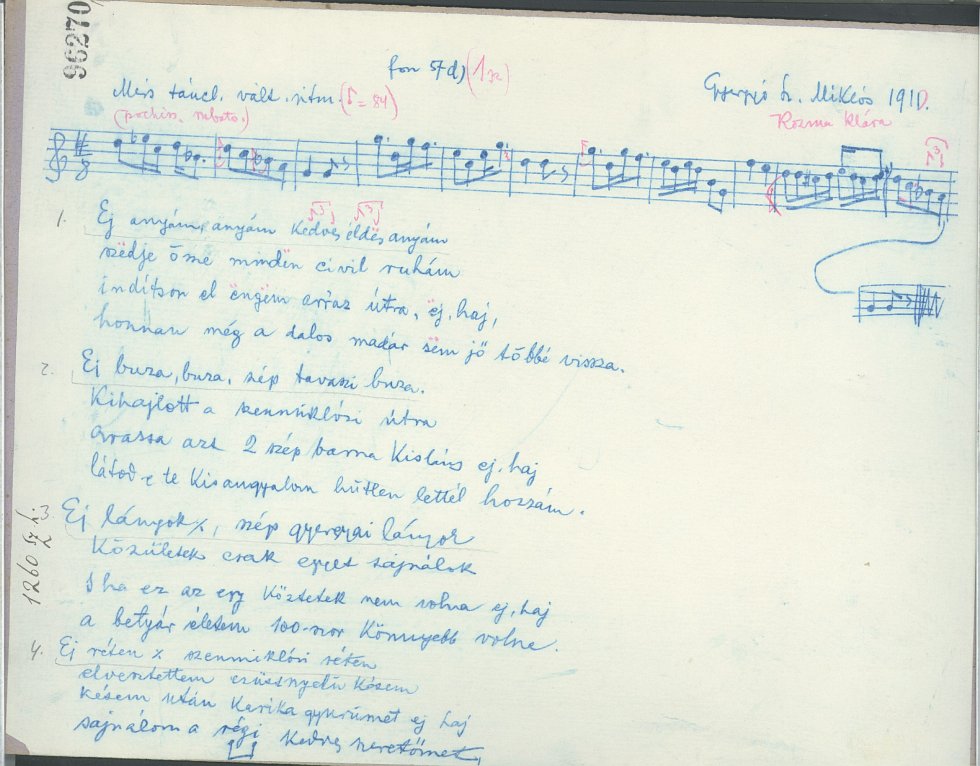 96270
fon 57d) (1x)
Mérs táncl. vált. ritm. ( = 84)
Gyergyó Sz. Miklós 1910.
(pochiss. rubato.)
Rozma Klára
1. Ej anyám, anyám kedves éldës anyám
szëdje ő me mindën civil ruhám
indítson el ëngëm arraz útra, ëj, haj,
honnan még a dalos madár sëm jő többé vissza.
2. Ej buza, buza, szép tavaszi buza.
Kihajlott a szenmiklósi útra
arassa azt 2 szép barna kislány ej, haj
látod-e te kisangyalom hűtlen lettél hozzám.
3. Ej lányok %, szép gyergyai lányok
közületek csak egyet sajnálok
S ha ez az egy köztetek nem volna ej, haj
a betyár életem 100-szor könnyebb volna.
4. Ej réten % szenmiklósi réten
elvesztettem ezüstnyelű késem
késem után karika gyűrűmet ej haj
sajnálom a régi kedves szeretőmet,
1260